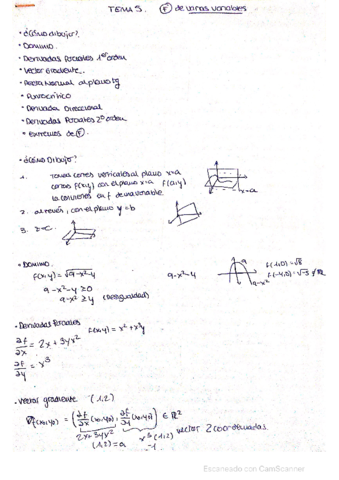 TEMA 5. (F) de varias variables
• ¿Cómo dibujo?
• Dominio.
• Derivadas Parciales 1er orden
• Vector Gradiente
• Recta Normal al plano tg
• Punto crítico
• Derivada Direccional
• Derivadas Parciales 2º orden
• Extremos de (F).
• ¿Cómo Dibujo?
1. Tomar cortes verticales al plano x=a
cortes f(x,y) con el plano x=a f(a,y)
la convierto en f de una variable.
x=a
2. al revés, con el plano y=b
3. z=C
• Dominio
f(x,y) = √9-x²-y
9-x²-y ≥ 0
9-x² ≥ y (desigualdad)
9-x²-y
9
9-x²
f(1,0)=√8
• Derivadas Parciales
f(x,y) = x²+x³y
∂f/∂x = 2x+3yx²
∂f/∂y = x³
• Vector gradiente (1,2)
∇f(x0,y0) = (∂f/∂x (x0,y0), ∂f/∂y (x0,y0)) ∈ ℝ²
2x+3yx²
x³ (1,2)
vector 2 coordenadas.
Escaneado con CamScanner